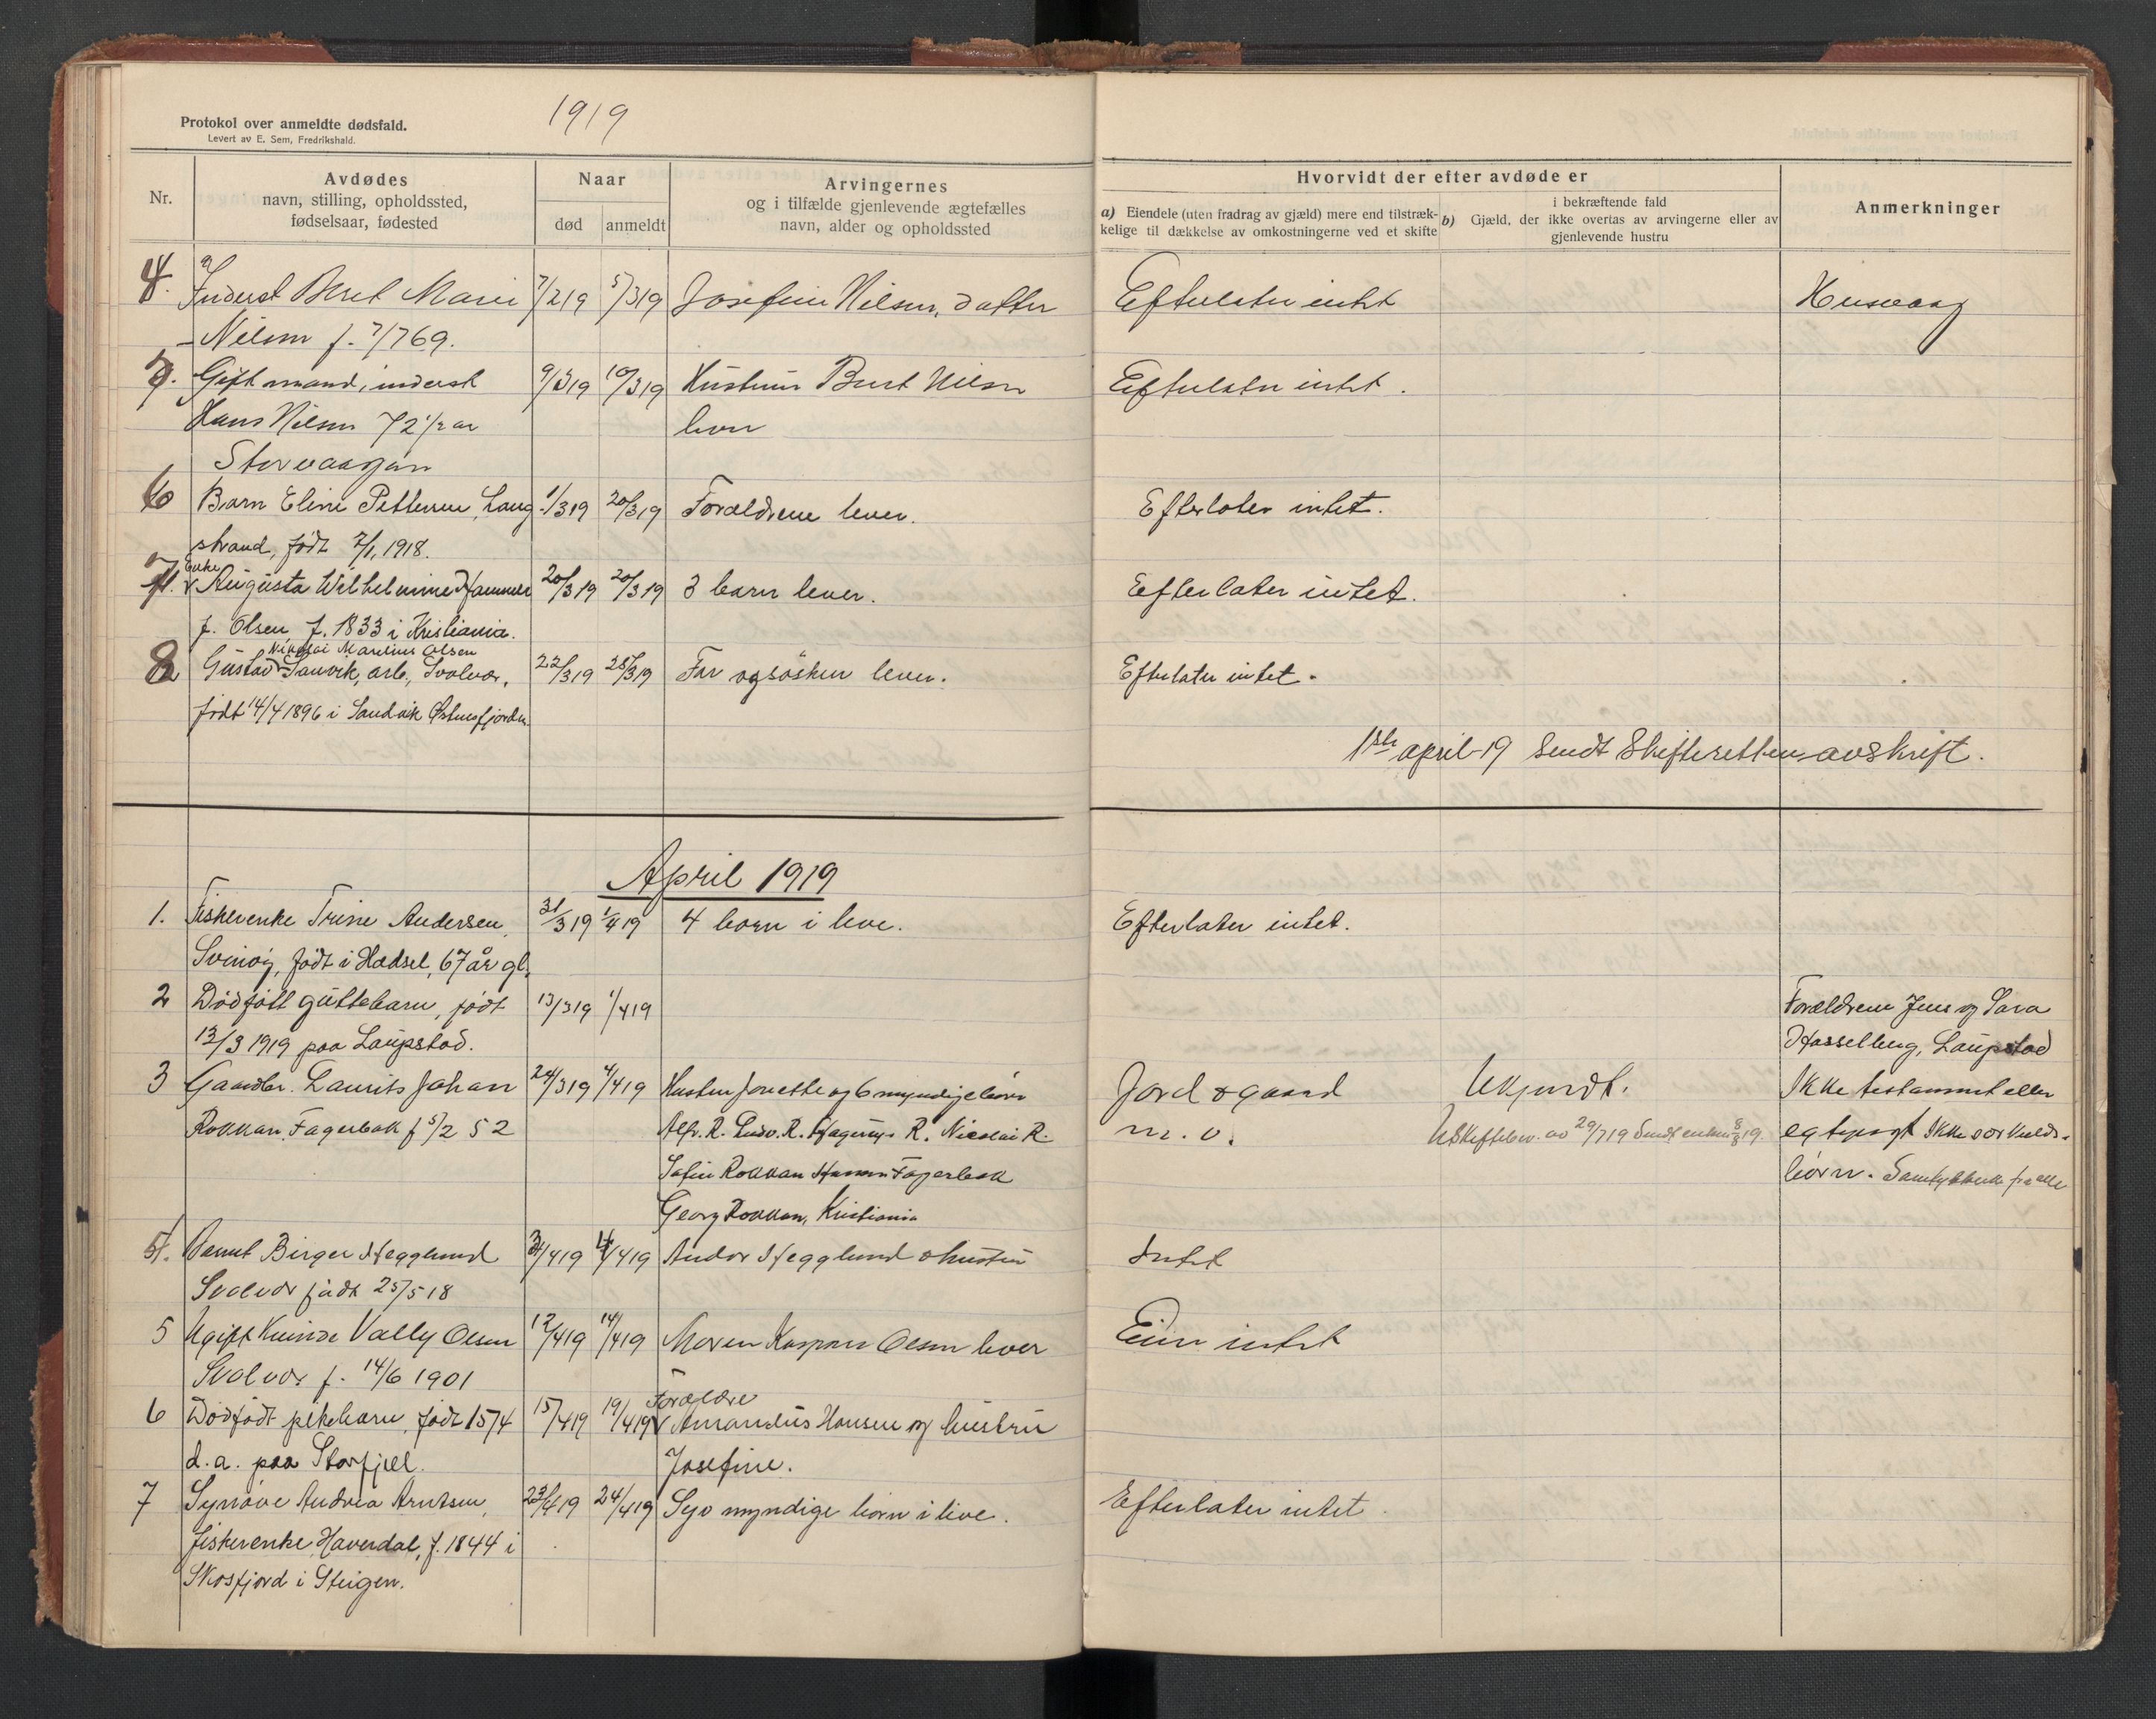 Protokol over anmeldte dødsfald.
Levert av E. Sem, Fredrikshald.
1919
Nr.
Avdødes
navn, stilling, opholdssted,
fødselsaar, fødested
Naar
død anmeldt
Arvingernes
og i tilfælde gjenlevende ægtefælles
navn, alder og opholdssted
Hvorvidt der efter avdøde er
a) Eiendele (uten fradrag av gjæld) mere end tilstræk-
kelige til dækkelse av omkostningerne ved et skifte
i bekræftende fald
b) Gjæld, der ikke overtas av arvingerne eller av
gjenlevende hustru
Anmerkninger
4. Inderst Beret Marie 7/2 19 5/3 19 Josefine Nilsen, datter Efterlater intet
Nilsen f. 7/7 69.
Gift mand, inderst 9/3 19 10/3 19 Hustru Beret Nilsen Efterlater intet.
Hans Nilsen 72 1/2 aar lever
Storvaagan
6 Barn Eline Pettersen, Laug- 1/3 19 20/3 19 Forældrene lever. Efterlater intet.
strand, født 2/1, 1918.
7. Enke
Augusta Wilhelmine Hammer 20/3 19 20/3 19 3 barn lever. Efterlater intet.
f. Olsen, f. 1833 i Kristiania.
Nikolai Marelius Olsen
8 Gustav Sanvik, arb., Svolvær, 22/3 19 28/3 19 Far og søsken lever. Efterlater intet.
født 14/4 1896 i Sandvik Østnesfjorden.
1ste april-19 Sendt Skifteretten avskrift.
April 1919
1. Fiskerenke Trine Andersen, 31/3 19 1/4 19 4 barn i live. Efterlater intet.
Svinøy, født i Hadsel, 67 år gl.
2 Dødfødt guttebarn, født 13/3 19 1/4 19 Forældrene Jens og Sara
13/3 1919 paa Laupstad. Hasselberg, Laupstad
3 Gaardbr. Laurits Johan 24/3 19 4/4 19 Hustru Jonette og 6 myndige børn Jord & gaard Ukjendt. Ikke testamnet eller
Rokkan, Fagerbak f 5/2 52 Alfr. R. Ludv. R. Hagerup R. Nicolai R. m. v. Uskiftebev. av 29/7 19 Sendt enken 8/8 19. egtepagt Ikke særkulds-
Sofie Rokkan Fagerbak børn. Samtykke fra alle
Georg Rokkan, Kristiania
4. Barnet Birger Hegglund 3/4 19 4/4 19 Andor Hegglund & hustru Intet
Svolvær født 25/5 18
5 Ugift Kvinde Vally Olsen 12/4 19 14/4 19 Moren Kaspara Olsen lever Eier intet
Svolvær f. 14/6 1901
Forældre
6 Dødfødt pikebarn, født 15/4 15/4 19 19/4 19 Amandus Hansen og hustru
d.a. paa Storfjell. Josefine.
7 Synøve Andrea Arntsen, 23/4 19 24/4 19 Syv myndige børn i live. Efterlater intet.
fiskerenke, Haverdal, f. 1844 i
Skosfjord i Steigen.